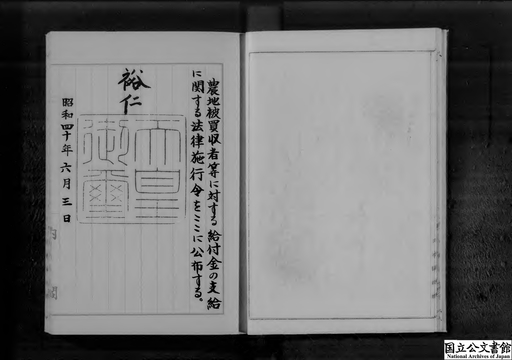 農地被買収者等に対する給付金の支給
に関する法律施行令をここに公布する。
裕仁
天皇
御璽
昭和四十年六月三日
国立公文書館
National Archives of Japan